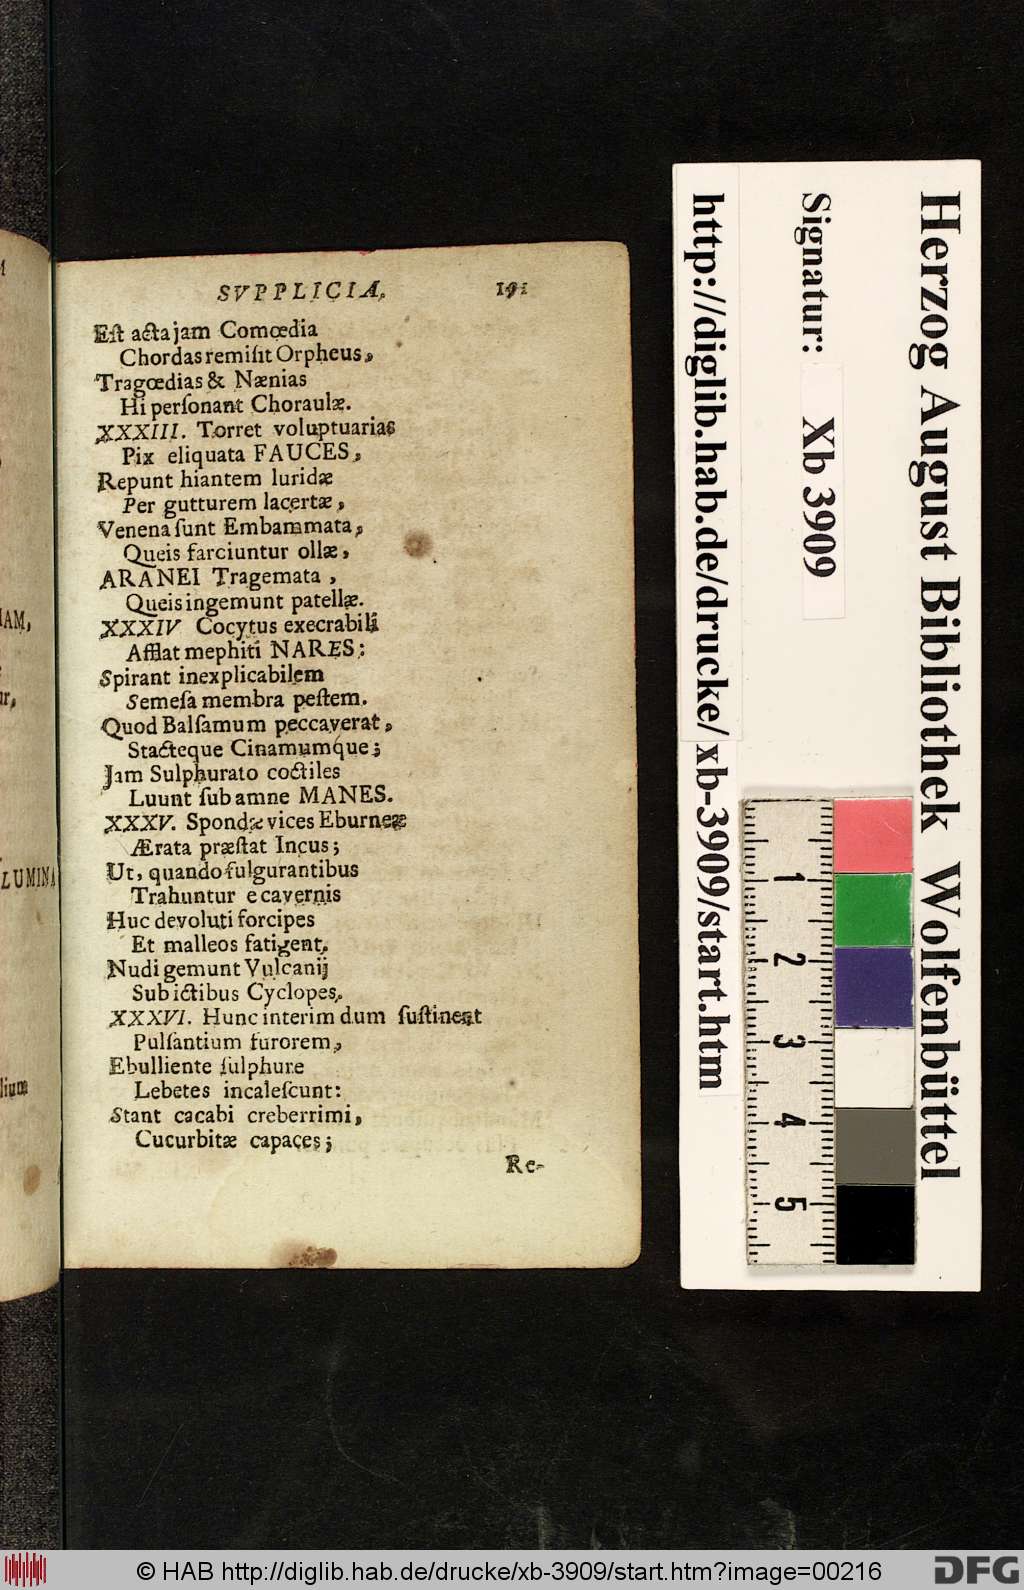 SVPPLICIA. 191
Eſt acta jam Comœdia
Chordas remiſit Orpheus,
Tragœdias & Nænias
Hi perſonant Choraulæ.
XXXIII. Torret voluptuarias
Pix eliquata FAUCES,
Repunt hiantem luridæ
Per gutturem lacertæ,
Venena ſunt Embammata,
Queis farciuntur ollæ,
ARANEI Tragemata,
Queis ingemunt patellæ.
XXXIV Cocytus execrabili
Afflat mephiti NARES:
Spirant inexplicabilem
Semeſa membra peſtem.
Quod Balſamum peccaverat,
Stacteque Cinamumque;
Jam Sulphurato coctiles
Luunt ſub amne MANES.
XXXV. Spondæ vices Eburneæ
Ærata præſtat Incus;
Ut, quando fulgurantibus
Trahuntur e cavernis
Huc devoluti forcipes
Et malleos fatigent.
Nudi gemunt Vulcanij
Sub ictibus Cyclopes.
XXXVI. Hunc interim dum ſuſtinent
Pulſantium furorem,
Ebulliente ſulphure
Lebetes incaleſcunt:
Stant cacabi creberrimi,
Cucurbitæ capaces;
Re-
IAM,
LUMINA
lium
Herzog August Bibliothek Wolfenbüttel
Signatur: Xb 3909
http://diglib.hab.de/drucke/xb-3909/start.htm
1
2
3
4
5
© HAB http://diglib.hab.de/drucke/xb-3909/start.htm?image=00216
DFG